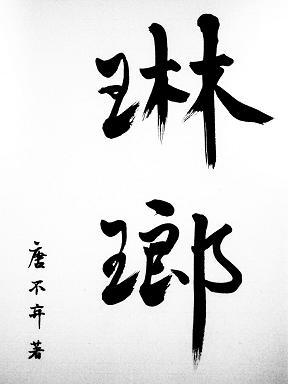 琳瑯
唐不弃 著